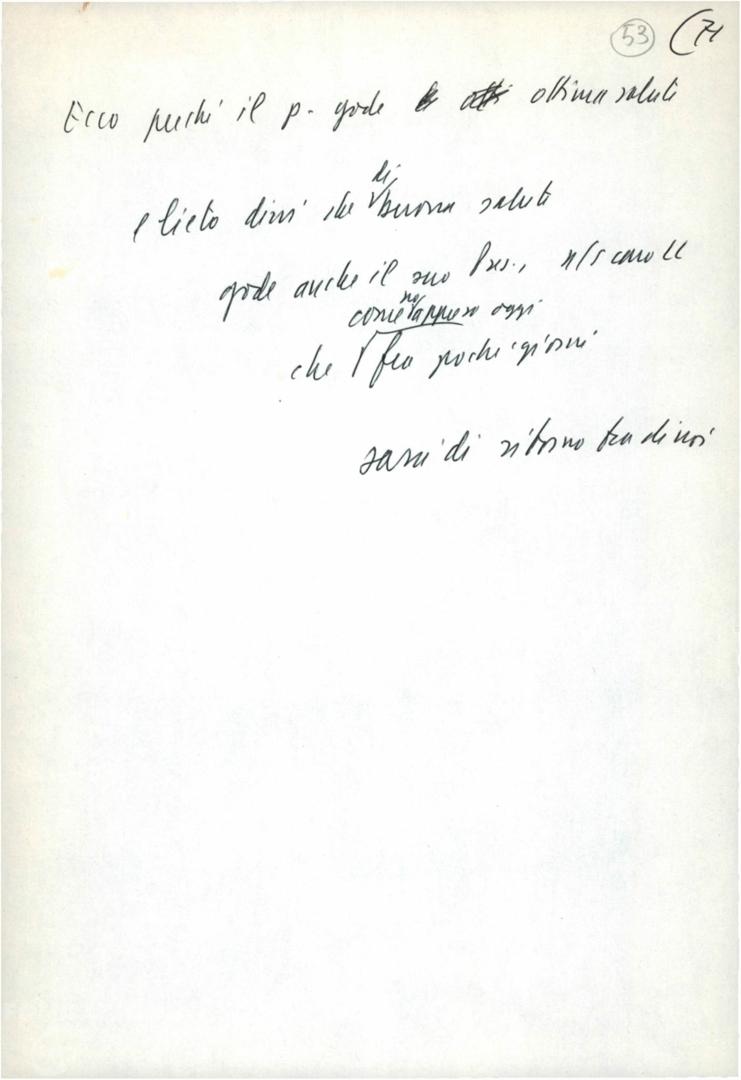 53 (71
Ecco perché il p. gode ottima salute
di
e lieto dirvi che buona salute
gode anche il suo Pres.,
come no appreso oggi
che fra pochi giorni
sarà di ritorno tra di noi